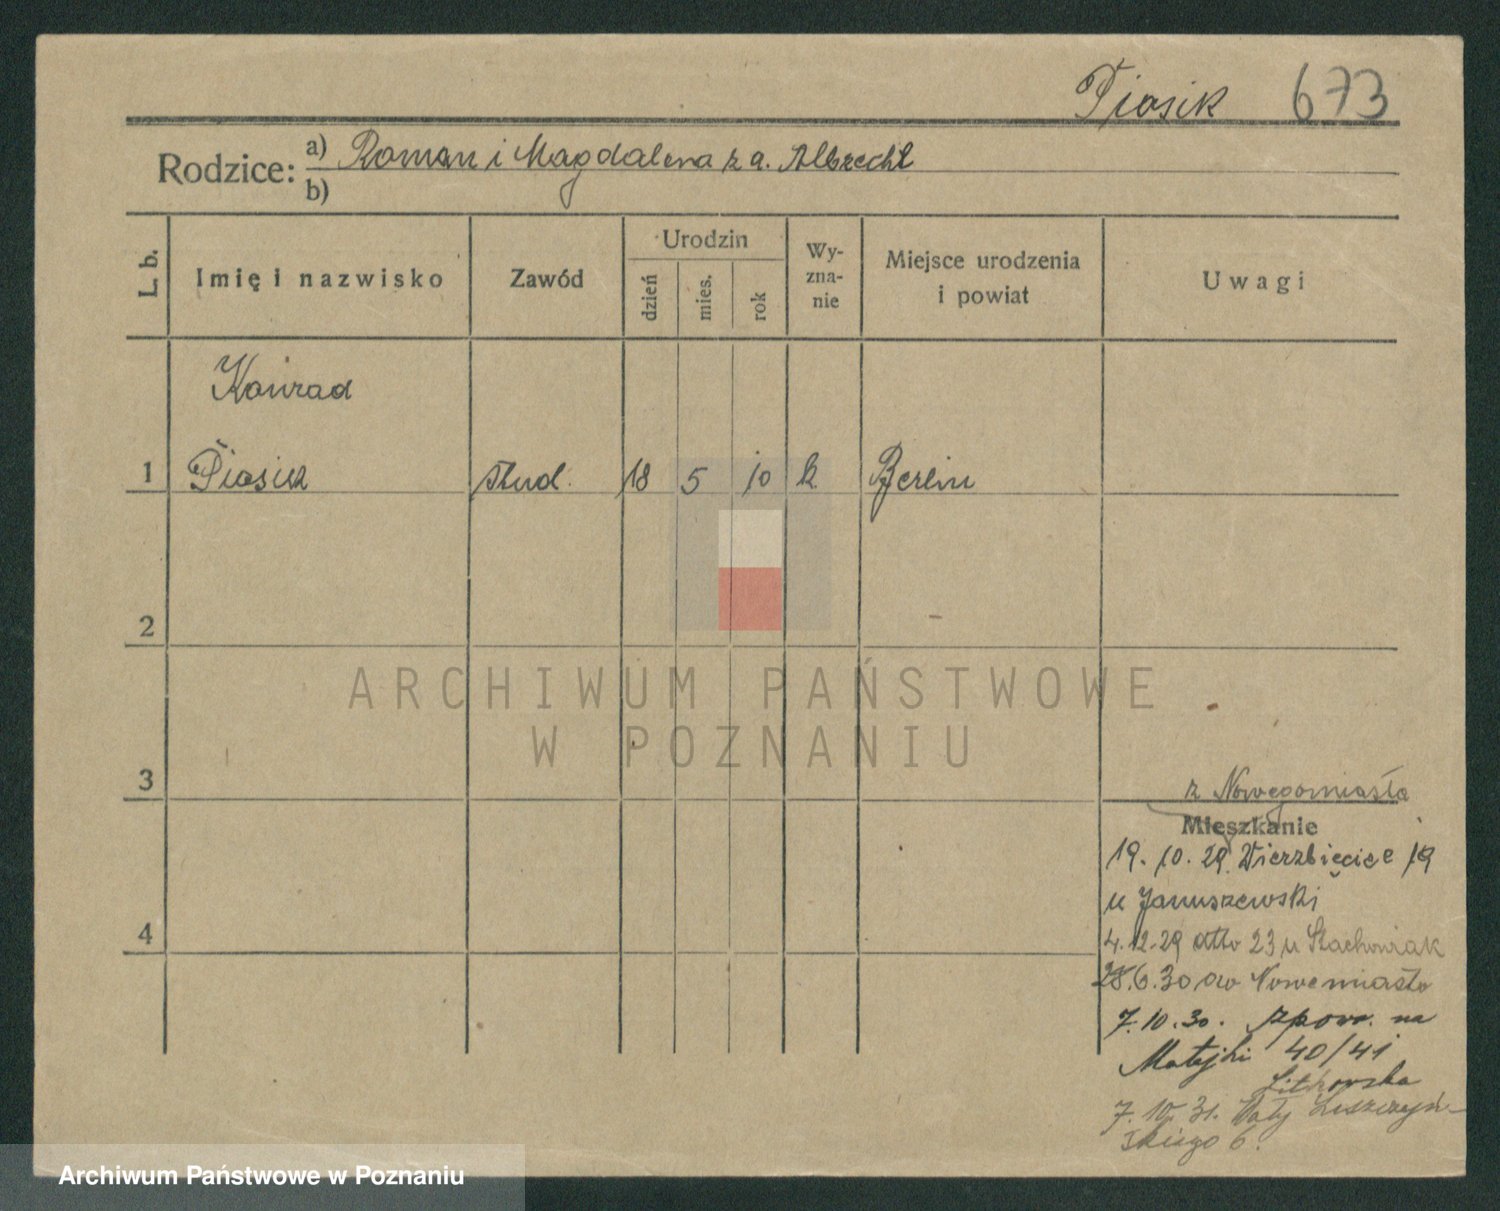 Piasik 673
Rodzice: a) Roman i Magdalena z d. Albrecht
b)
L. b.
Imię i nazwisko
Zawód
Urodzin
dzień
mies.
rok
Wy-
zna-
nie
Miejsce urodzenia
i powiat
Uwagi
Konrad
1 Piasik stud. 18 5 10 k Berlin
2
ARCHIWUM PAŃSTWOWE
W POZNANIU
3
z Nowegomiasta
Mieszkanie
19.10.29. Wierzbięcice 19
u Januszewski
4
4.12.29 dtto 23 u Stachowiak
28.6.30 do Nowemiasto
7.10.30. zpow. na
Matejki 40/41
7.10.31. Wały Leszczyń-
skiego 6.
Archiwum Państwowe w Poznaniu